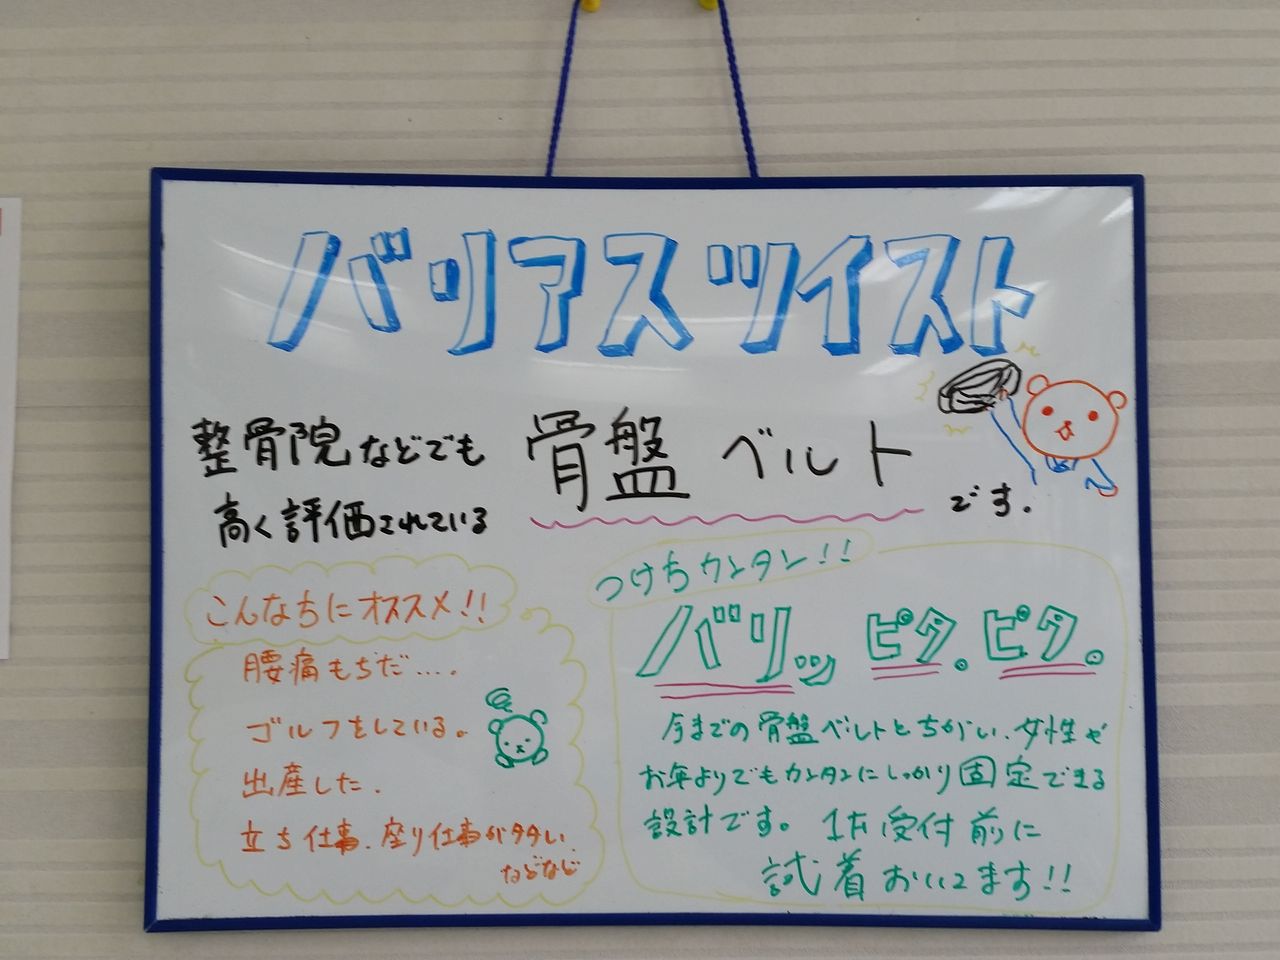 バリアスツイスト
整骨院などでも
高く評価されている
骨盤ベルト
です.
こんな方にオススメ!!
腰痛もちだ....
ゴルフをしている。
出産した.
立ち仕事.座り仕事が多い
などなど
つけ方カンタン!!
バリッッ ピタ。ピタ。
今までの骨盤ベルトとちがい、女性や
お年よりでもカンタンにしっかり固定できる
設計です。1F受付前に
試着おいてます!!